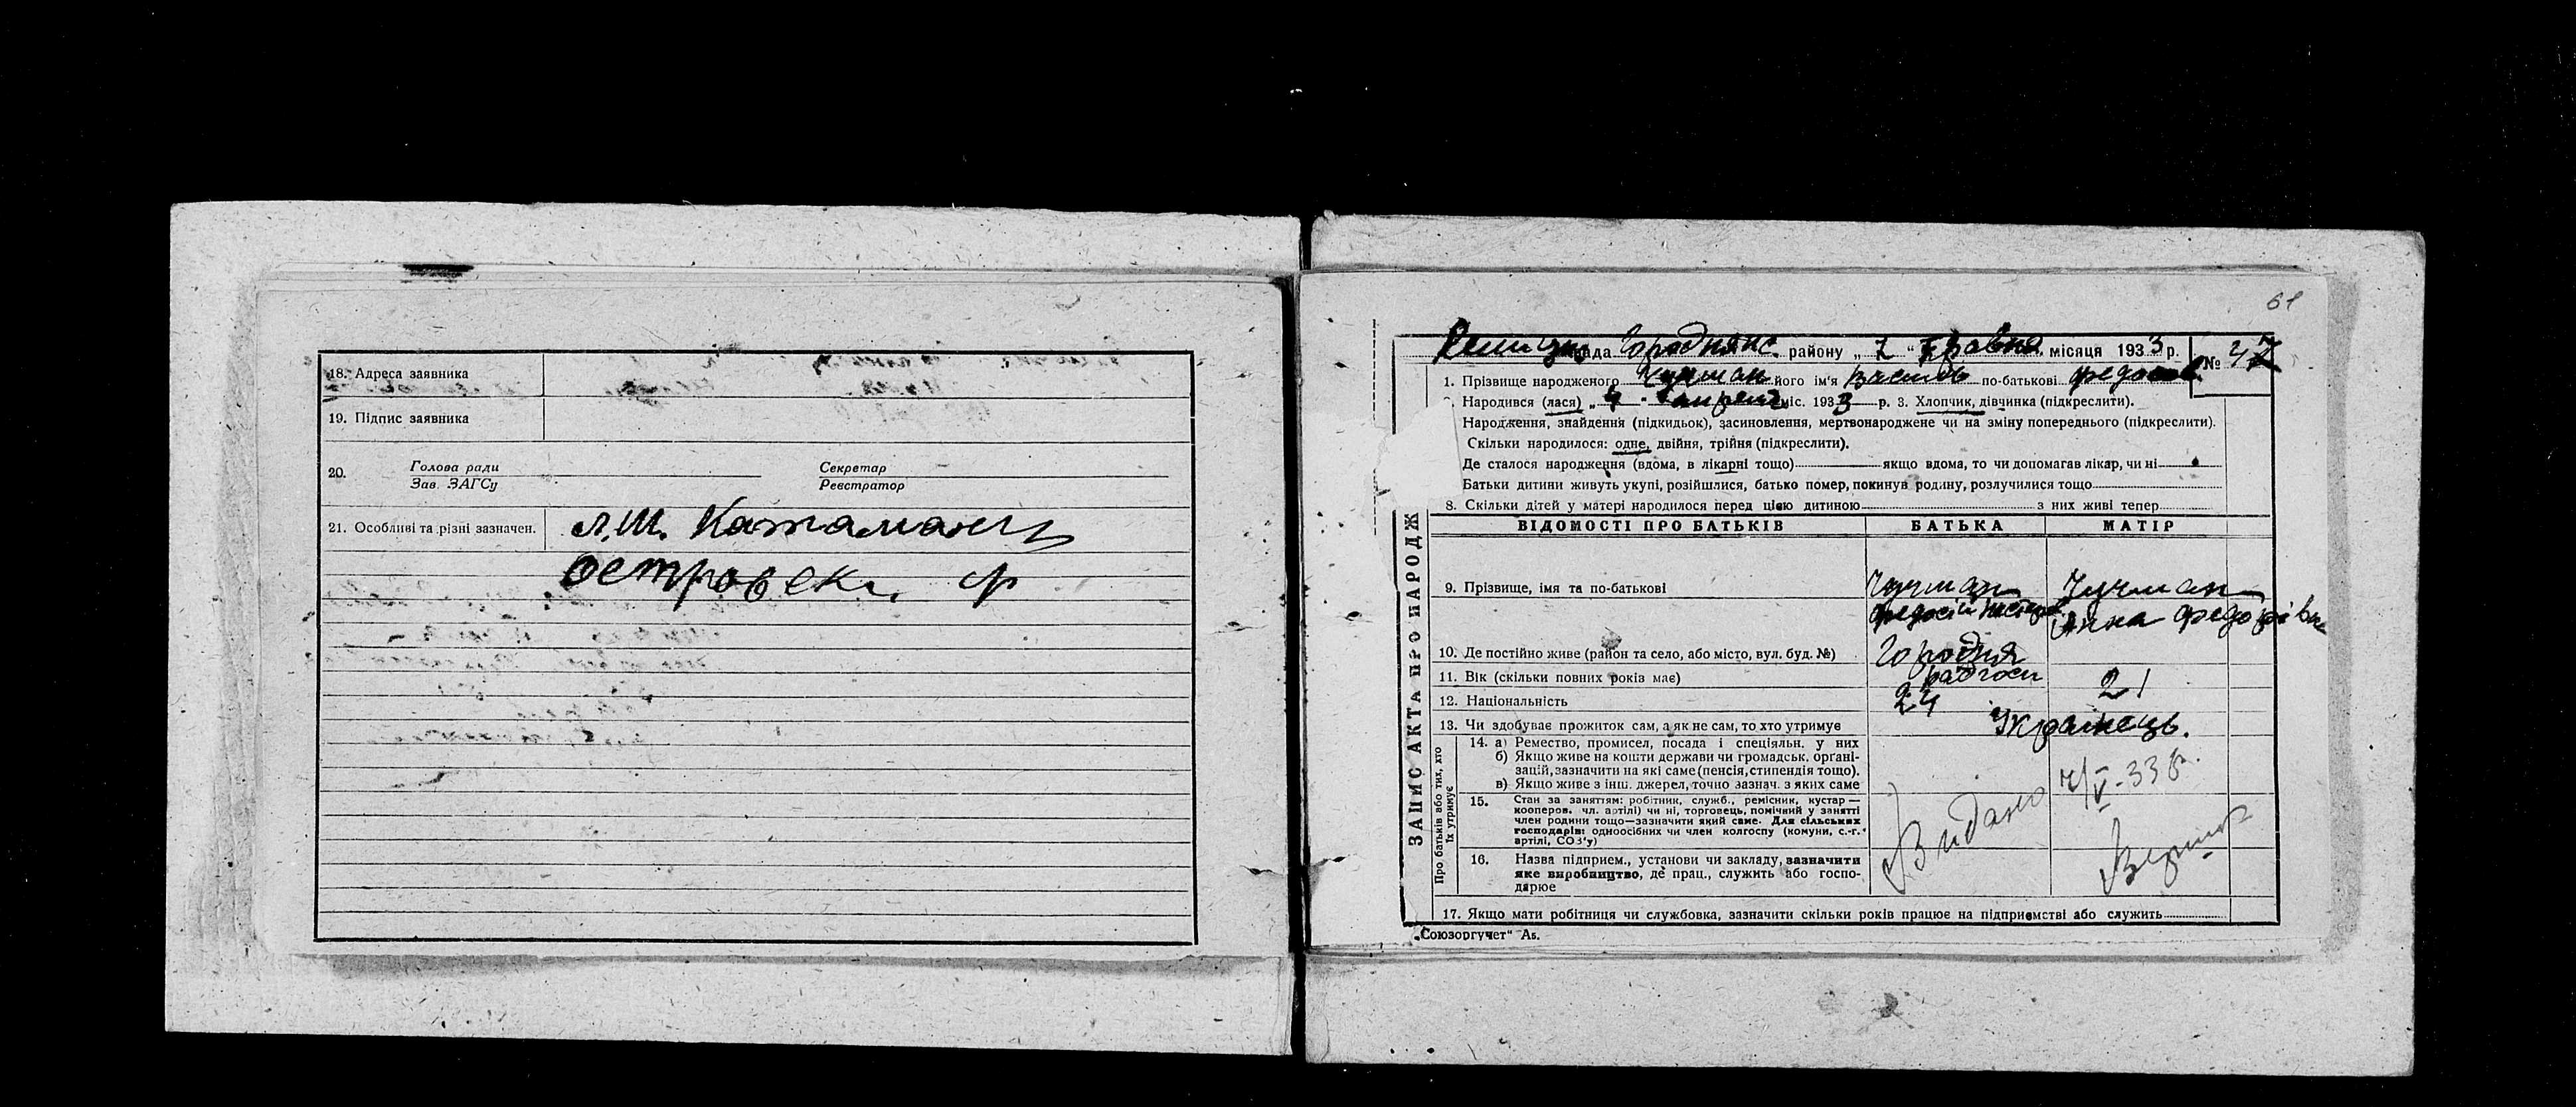 18. Адреса заявника
19. Підпис заявника
20. Голова ради Секретар
Зав. ЗАГСу Реєстратор
21. Особливі та різні зазначен.
Островськ.
61
рада району „ 7 " травня місяця 1933 р. №
1. Прізвище народженого його ім'я Василь по-батькові
Народився (лася) „ 4 " міс. 1933 р. 3. Хлопчик, дівчинка (підкреслити).
Народження, знайдення (підкидьок), засиновлення, мертвонароджене чи на зміну попереднього (підкреслити).
Скільки народилося: одне, двійня, трійня (підкреслити).
Де сталося народження (вдома, в лікарні тощо) якщо вдома, то чи допомагав лікар, чи ні
Батьки дитини живуть укупі, розійшлися, батько помер, покинув родину, розлучилися тощо
8. Скільки дітей у матері народилося перед цією дитиною з них живі тепер
ЗАПИС АКТА ПРО НАРОДЖ
ВІДОМОСТІ ПРО БАТЬКІВ БАТЬКА МАТІР
9. Прізвище, імя та по-батькові
Федосій Анна Федорівна
10. Де постійно живе (район та село, або місто, вул. буд. №) Городня
радгосп
11. Вік (скільки повних років має) 24 21
12. Національність Українець.
13. Чи здобуває прожиток сам, а як не сам, то хто утримує
Про батьків або тих, хто їх утримує
14. а) Ремество, промисел, посада і спеціяльн. у них
б) Якщо живе на кошти держави чи громадськ. органі-
зацій, зазначити на які саме (пенсія, стипендія тощо).
в) Якщо живе з інш. джерел, точно зазнач. з яких саме
15. Стан за заняттям: робітник, служб., ремісник, кустар —
кооперов. чл. артілі) чи ні, торговець, помічний у занятті
член родини тощо—зазначити який саме. Для сільських
господарів: одноосібних чи член колгоспу (комуни, с.-г.
артілі, СОЗ'у)
16. Назва підприєм., установи чи закладу, зазначити
яке виробництво, де прац., служить або госпо-
дарює
Видано 7/V-33 р.
17. Якщо мати робітниця чи службовка, зазначити скільки років працює на підприємстві або служить
„Союзоргучет" А5.